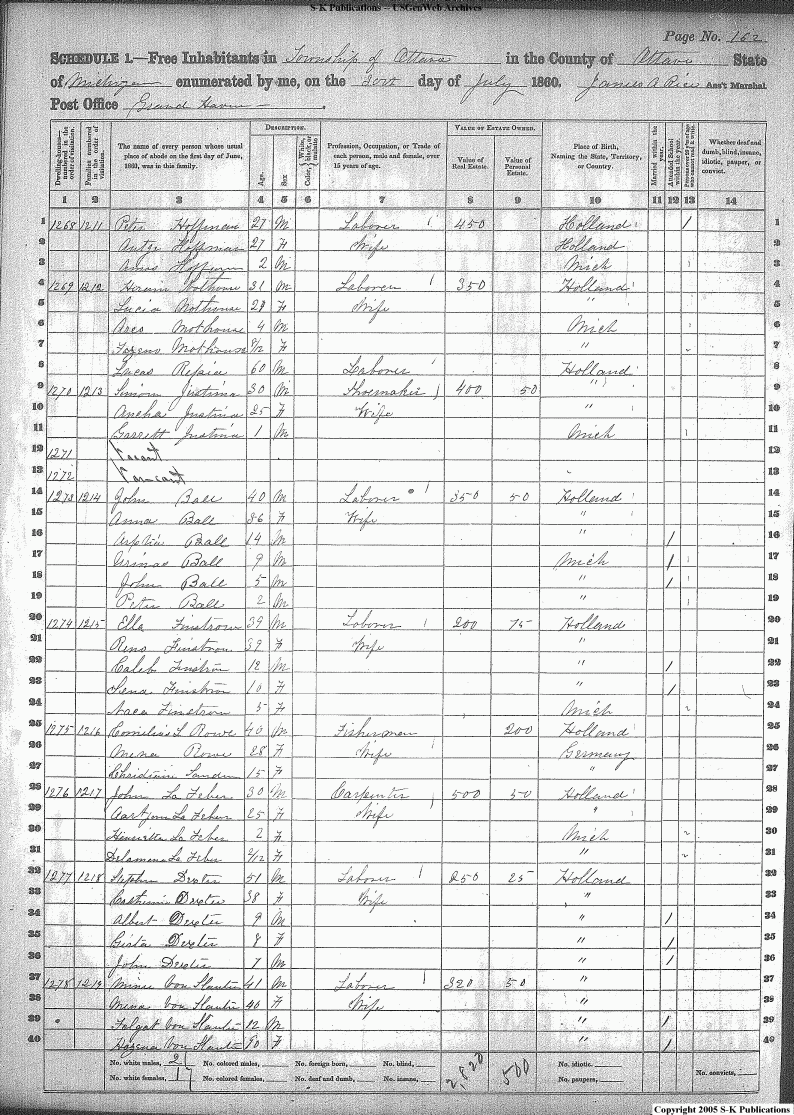 S-K Publications -- USGenWeb Archives
Page No. 162
SCHEDULE 1.—Free Inhabitants in Township of Ottawa in the County of Ottawa State
of Michigan enumerated by me, on the 20th day of July 1860. James A Rice Ass't Marshal
Post Office Grand Haven
Dwelling-houses—numbered in the order of visitation.
Families numbered in the order of visitation.
The name of every person whose usual place of abode on the first day of June, 1860, was in this family.
DESCRIPTION.
Age.
Sex
Color, White, black, or mulatto
Profession, Occupation, or Trade of each person, male and female, over 15 years of age.
VALUE OF ESTATE OWNED.
Value of Real Estate.
Value of Personal Estate.
Place of Birth, Naming the State, Territory, or Country.
Married within the year.
Attended School within the year.
Persons over 20 y'rs of age who cannot read & write.
Whether deaf and dumb, blind, insane, idiotic, pauper, or convict.
1 2 3 4 5 6 7 8 9 10 11 12 13 14
1 1268 1211 Peter Hoffman 27 M Laborer 450 Holland / 1
2 Hoffman 27 F Wife Holland 2
3 2 M Mich 3
4 1269 1212 Hiram 31 M Laborer 350 Holland 4
5 Lucia Mothouse F Wife " 5
6 Mothouse 4 M Mich 6
7 Mothouse /12 F " 7
8 Lucas 60 M Laborer Holland 8
9 1270 1213 Simon Justina 30 M Shoemaker 400 50 " 9
10 Justina 25 F Wife " 10
11 Garrett Justina 1 M Mich 11
12 1271 Vacant 12
13 1272 Vacant 13
14 1273 1214 John Ball 40 M Laborer 350 50 Holland 14
15 Anna Ball 36 F Wife " 15
16 Ball 14 M " / 16
17 Ball 9 M Mich / 17
18 John Ball 5 M " / 18
19 Peter Ball 2 M " 19
20 1274 1215 Ella Finstrom 39 M Laborer 200 75 Holland 20
21 Reno Finstrom 39 F Wife " 21
22 Caleb Finstrom 12 M " / 22
23 Sena Finstrom 10 F " / 23
24 Finstrom 5 F Mich 24
25 1275 1216 Cornelius L Rowe 40 M Fisherman 200 Holland 25
26 Mena Rowe 28 F Wife Germany 26
27 15 F " 27
28 1276 1217 John La Feber 30 M Carpenter 500 50 Holland 28
29 La Feber 25 F Wife " 29
30 Henrietta La Feber 2 F Mich 30
31 La Feber /12 F " 31
32 1277 1218 Stephen Dexter 51 M Laborer 250 25 Holland 32
33 Dexter 38 F Wife " 33
34 Albert Dexter 9 M " / 34
35 Dexter 8 F " / 35
36 John Dexter 7 M " / 36
37 1278 1219 Von 41 M Laborer 320 50 " 37
38 Mena Von 40 F Wife " 38
39 Von 12 M " / 39
40 Von F " / 40
No. white males, 21 No. colored males, No. foreign born, No. blind, 2,820 500 No. idiotic.
No. white females, 17 No. colored females, No. deaf and dumb, No. insane, No. paupers, No. convicts,
Copyright 2005 S-K Publications